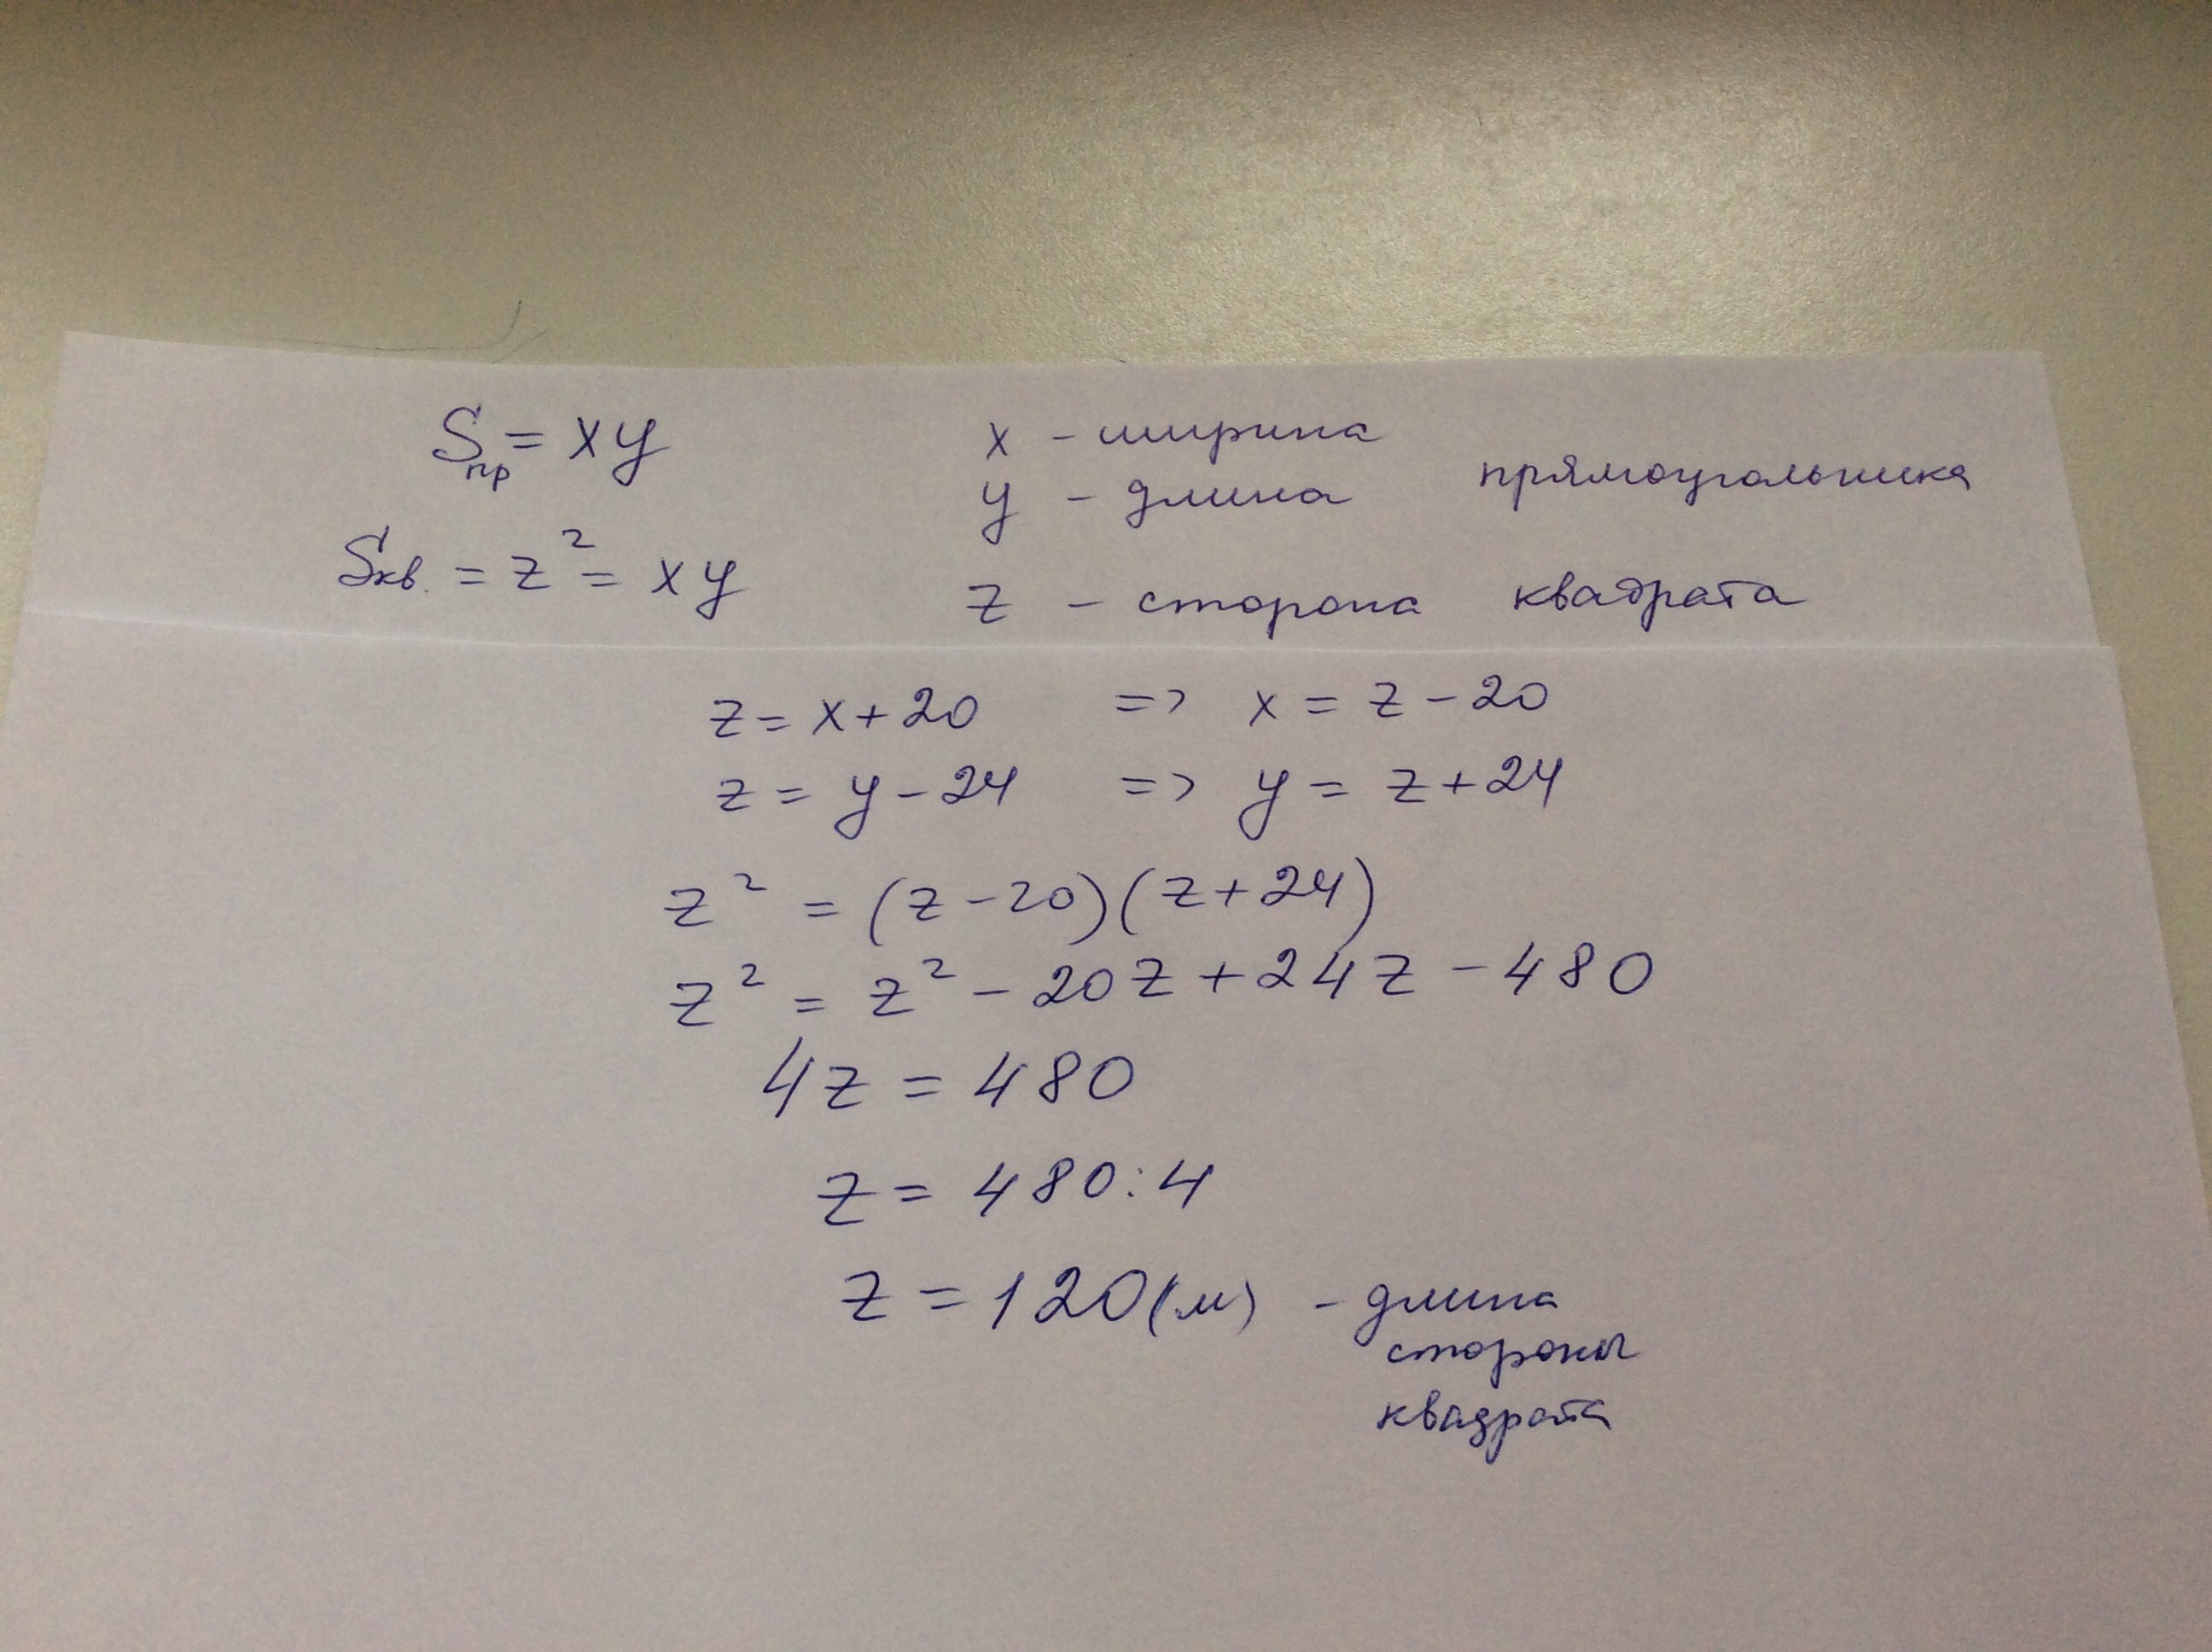 Sпр = xy
x - ширина
y - длина
прямоугольника
Sкв. = z² = xy
z - сторона квадрата
z = x + 20 => x = z - 20
z = y - 24 => y = z + 24
z² = (z - 20)(z + 24)
z² = z² - 20z + 24z - 480
4z = 480
z = 480 : 4
z = 120 (м) - длина
стороны
квадрата